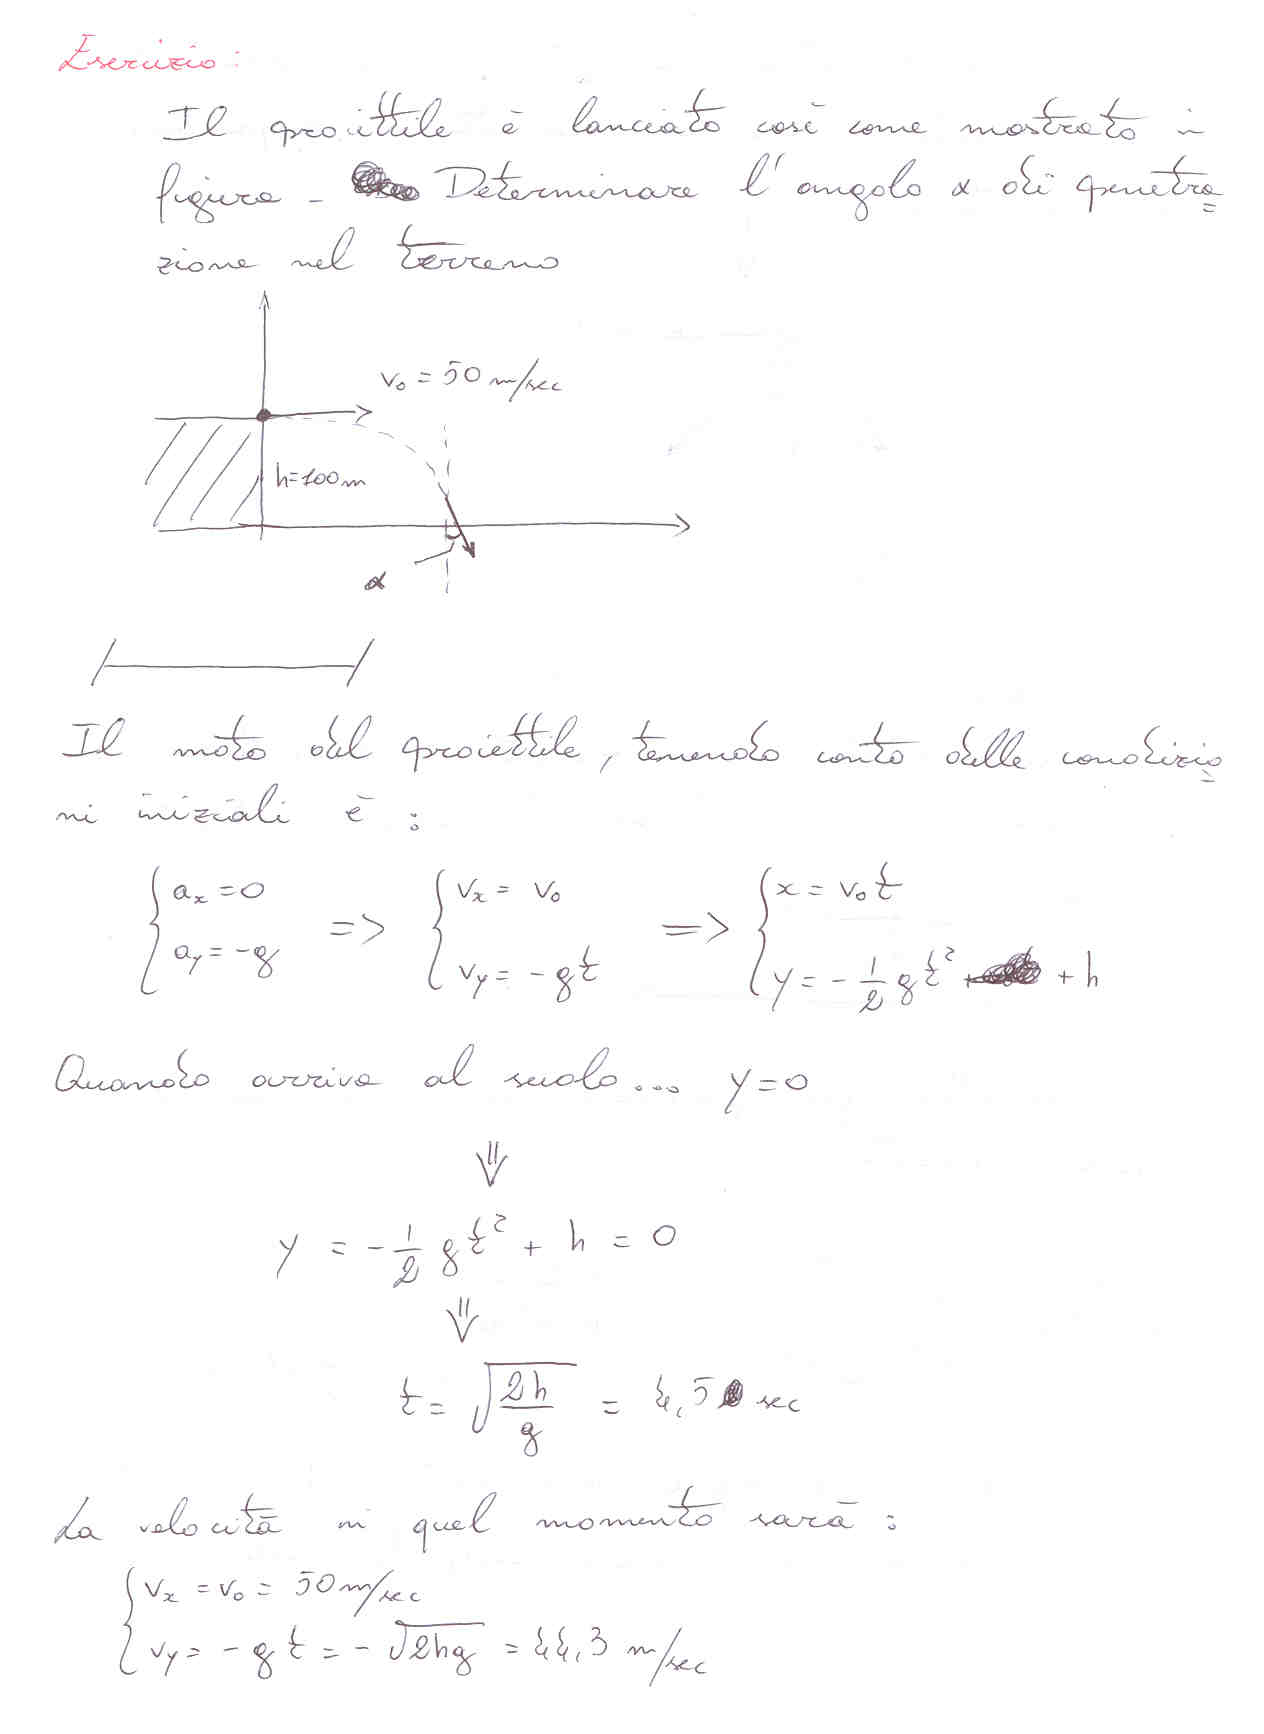 Esercizio:
Il proiettile è lanciato così come mostrato in
figura - Determinare l'angolo α di penetra=
zione nel terreno
v₀ = 50 m/sec
h=100m
α
Il moto del proiettile, tenendo conto delle condizio=
ni iniziali è :
{ aₓ = 0 => { vₓ = v₀ => { x = v₀t
{ a_y = -g { v_y = -gt { y = -1/2 gt² + h
Quando arriva al suolo... y=0
⇓
y = -1/2 gt² + h = 0
⇓
t = √(2h/g) = 4,5 sec
La velocità in quel momento sarà :
{ vₓ = v₀ = 50 m/sec
{ v_y = -gt = -√2hg = 44,3 m/sec